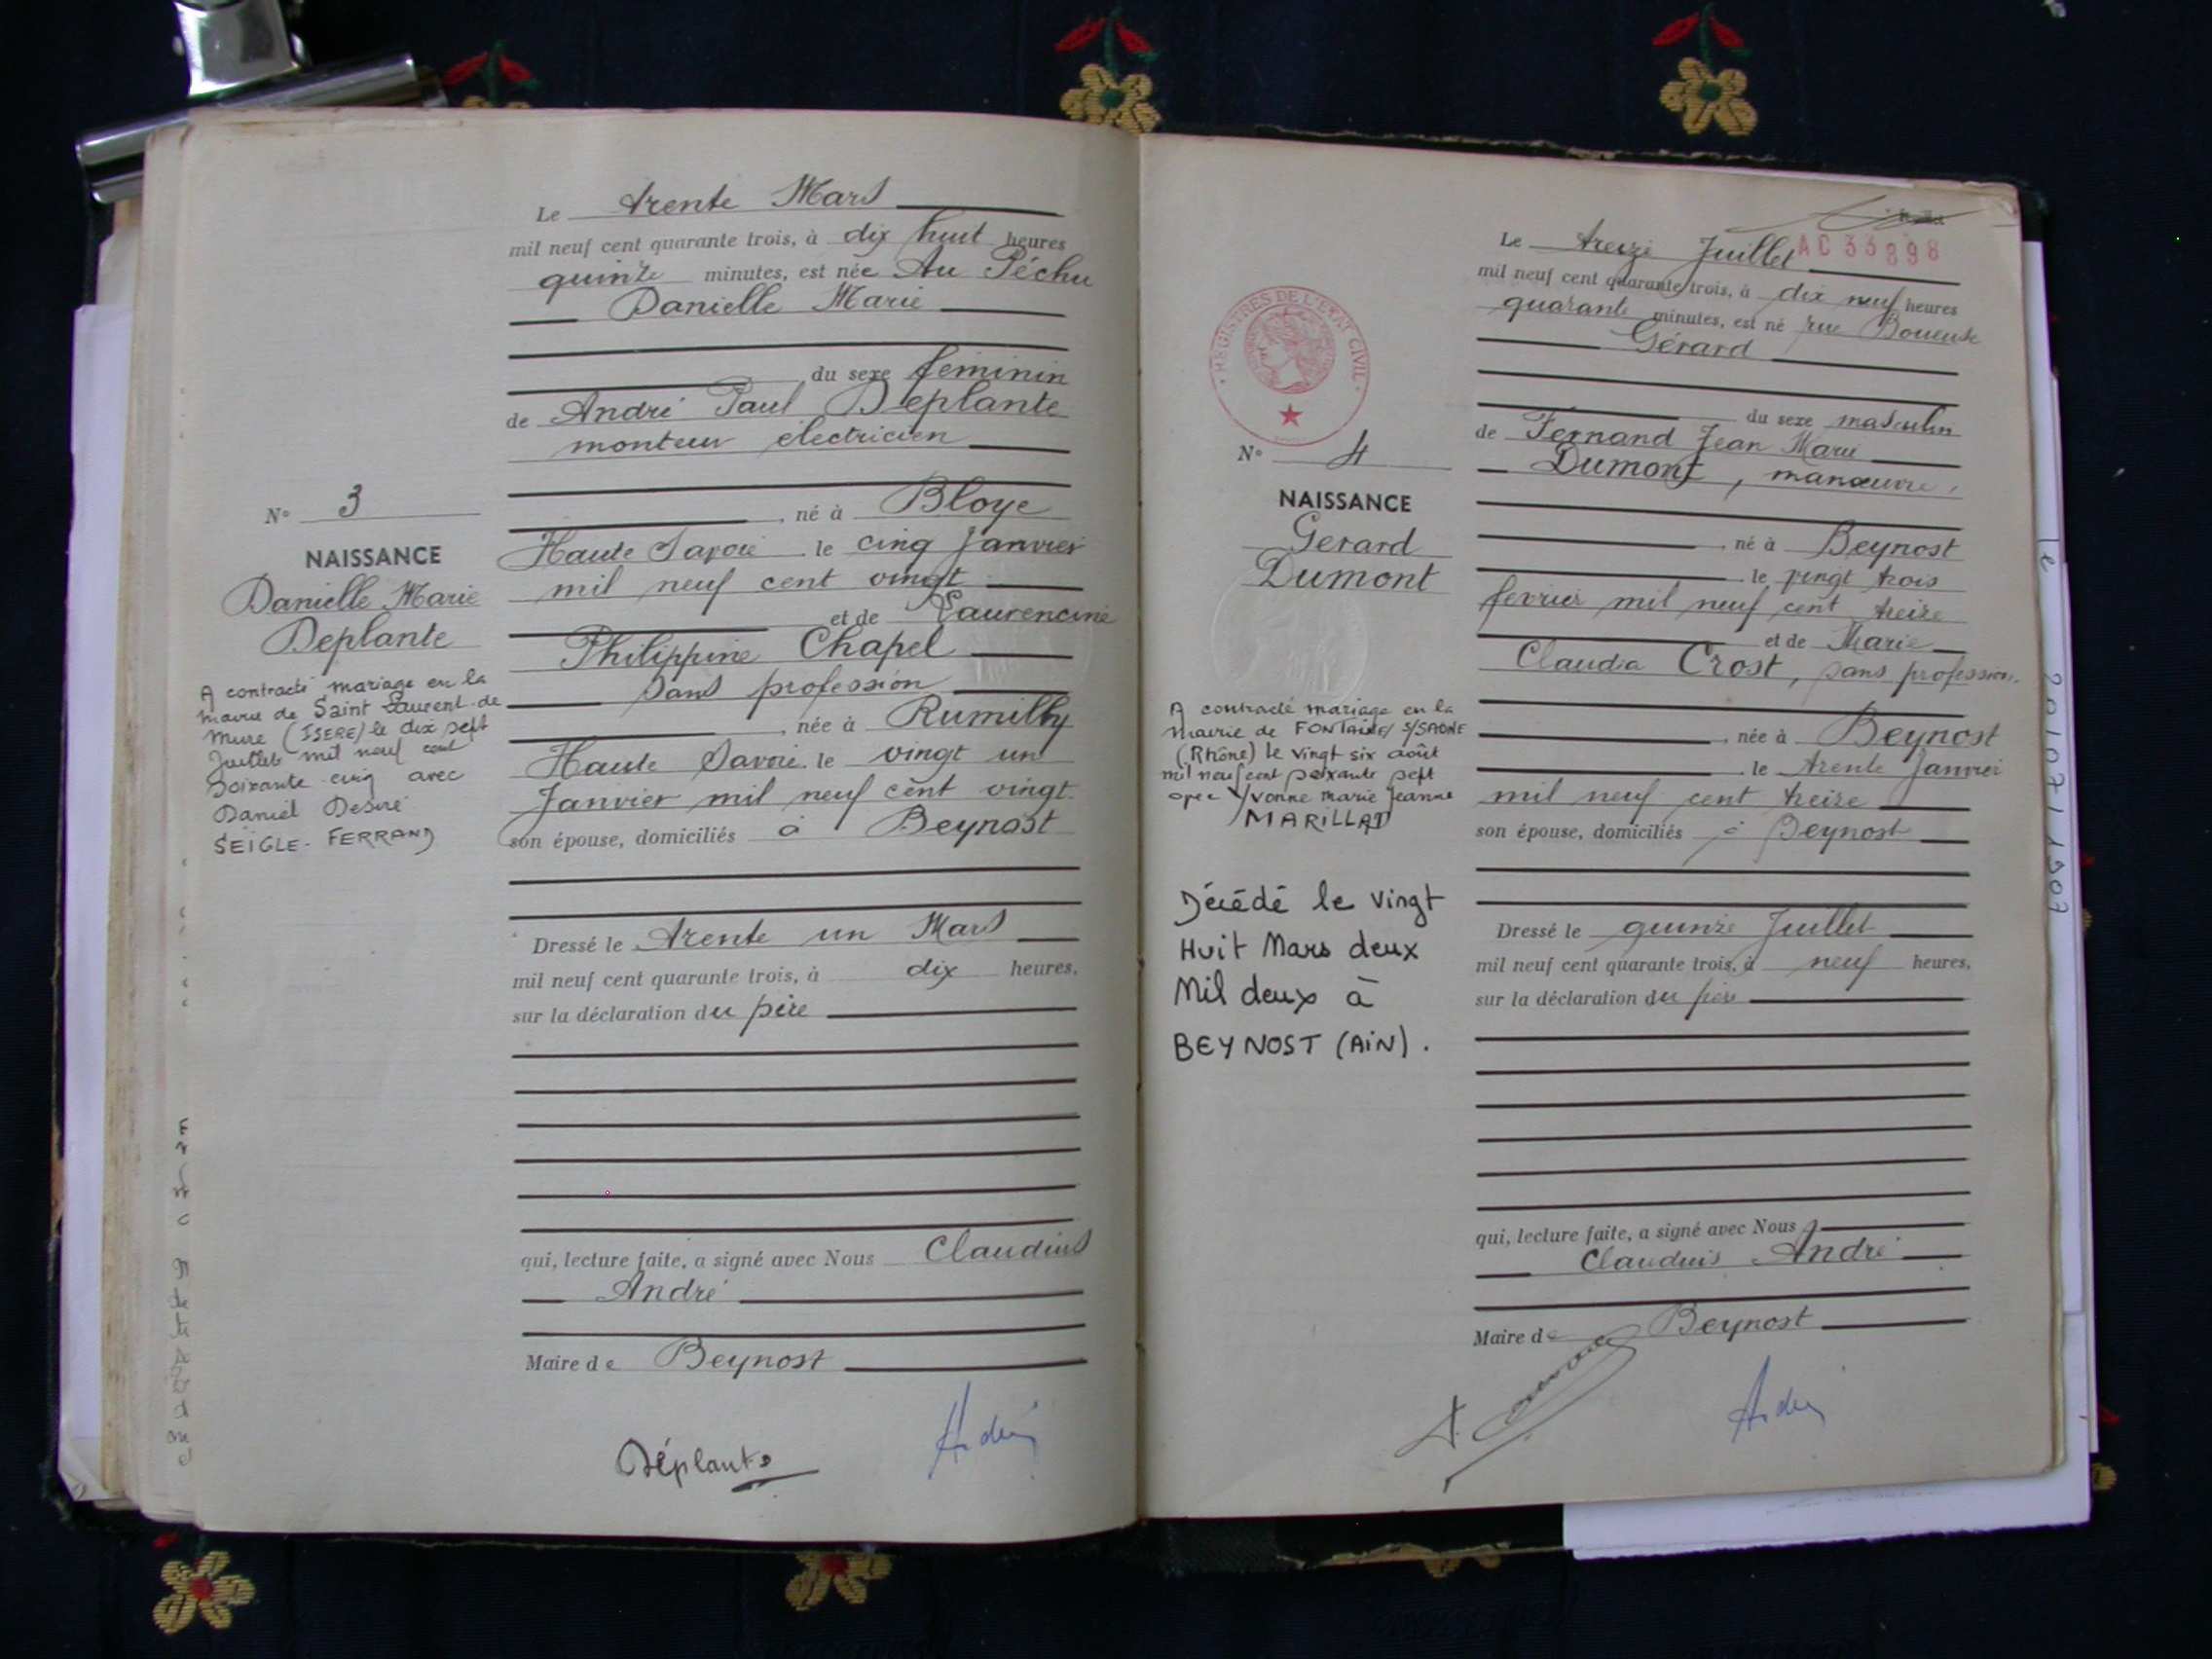 Le trente Mars
mil neuf cent quarante trois, à dix huit heures
quinze minutes, est née Au Péchu
Danielle Marie
du sexe féminin
de André Paul Deplante
monteur électricien
né à Bloye
Haute Savoie le cinq Janvier
mil neuf cent vingt
et de Laurencine
Philippine Chapel
sans profession
née à Rumilly
Haute Savoie le vingt un
Janvier mil neuf cent vingt
son épouse, domiciliés à Beynost
Dressé le trente un Mars
mil neuf cent quarante trois, à dix heures,
sur la déclaration du père
qui, lecture faite, a signé avec Nous Claudius
André
Maire de Beynost
Déplante
André
N° 3
NAISSANCE
Danielle Marie
Deplante
A contracté mariage en la
mairie de Saint Laurent-de
Mure (ISERE) le dix sept
Juillet mil neuf cent
soixante cinq avec
Daniel Desiré
SEIGLE-FERRAND
feuillet
AC 33898
Le treize Juillet
mil neuf cent quarante trois, à dix neuf heures
quarante minutes, est né rue Boueuse
Gérard
du sexe masculin
de Fernand Jean Marie
Dumont, manœuvre,
né à Beynost
le vingt trois
fevrier mil neuf cent treize
et de Marie
Claudia Crost, sans profession,
née à Beynost
le trente Janvier
mil neuf cent treize
son épouse, domiciliés à Beynost
Dressé le quinze Juillet
mil neuf cent quarante trois, à neuf heures,
sur la déclaration du père
qui, lecture faite, a signé avec Nous
Claudius André
Maire de Beynost
André
REGISTRES DE L'ETAT CIVIL
N° 4
NAISSANCE
Gerard
Dumont
A contracté mariage en la
mairie de FONTAINES S/SAONE
(Rhône) le vingt six août
mil neuf cent soixante sept
avec Yvonne Marie Jeanne
MARILLAD
Décédé le vingt
Huit Mars deux
Mil deux à
BEYNOST (AIN).